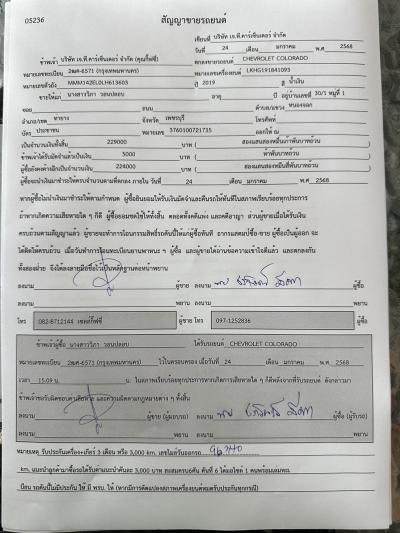 05236
สัญญาขายรถยนต์
เขียนที่ บริษัท เจ.ที.คาร์เซ็นเตอร์ จำกัด
วันที่ 24 เดือน มกราคม พ.ศ. 2568
ข้าพเจ้า บริษัท เจ.ที.คาร์เซ็นเตอร์ จำกัด (คุณกี้ฟซี่) ตกลงขายรถยนต์ CHEVROLET COLORADO
หมายเลขทะเบียน 2ฒศ-6571 (กรุงเทพมหานคร) หมายเลขเครื่องยนต์ LKHG191841093
หมายเลขตัวถัง MMM142EL0LH613603 ปี 2019 สี น้ำเงิน
ขายให้แก่ นางสาววิภา วอนปลอบ อายุ ปี อยู่บ้านเลขที่ 30/1 หมู่ที่ 1
ซอย ถนน ตำบล/แขวง หนองจอก
อำเภอ/เขต ท่ายาง จังหวัด เพชรบุรี โทรศัพท์
บัตร ประชาชน หมายเลข 3760100721735 ออกให้ ณ
เป็นจำนวนเงินทั้งสิ้น 229000 บาท ( สองแสนสองหมื่นเก้าพันบาทถ้วน )
ข้าพเจ้าได้รับมัดจำแล้วเป็นเงิน 5000 บาท ( ห้าพันบาทถ้วน )
ผู้ซื้อคงค้างอีกเป็นจำนวนเงิน 224000 บาท ( สองแสนสองหมื่นสี่พันบาทถ้วน )
ผู้ซื้อจะนำเงินมาชำระให้ครบจำนวนตามที่ตกลง ภายใน วันที่ 24 เดือน มกราคม พ.ศ. 2568
หากผู้ซื้อไม่นำเงินมาชำระได้ตามกำหนด ผู้ซื้อยินยอมให้รับเงินมัดจำและคืนรถให้ทันทีในสภาพเรียบร้อยทุกประการ
ถ้าหากเกิดความเสียหายใด ๆ ก็ดี ผู้ซื้อยอมชดใช้ให้ทั้งสิ้น ตลอดทั้งคดีแพ่ง และคดีอาญา ส่วนผู้ขายเมื่อได้รับเงิน
ครบถ้วนตามสัญญาแล้ว ผู้ขายจะทำการโอนกรรมสิทธิ์รถคันนี้ให้แก่ผู้ซื้อทันที อากรแสตมป์ซื้อ-ขาย ผู้ซื้อเป็นผู้ออก
ทั้งสองฝ่าย จึงได้ลงลายมือชื่อไว้เป็นหลักฐานต่อหน้าพยาน
ลงนาม ผู้ขาย ลงนาม ผู้ซื้อ
ลงนาม พยาน ลงนาม พยาน
โทร 082-8712144 เซลล์กี้ฟซี่ ผู้ขาย โทร 097-1252836 ผู้ซื้อ
ข้าพเจ้าผู้ซื้อ นางสาววิภา วอนปลอบ ได้รับรถยนต์ CHEVROLET COLORADO
หมายเลขทะเบียน 2ฒศ-6571 (กรุงเทพมหานคร) ไว้ในครอบครอง เมื่อวันที่ 24 เดือน มกราคม พ.ศ. 2568
เวลา 15.09 น. น. ในสภาพเรียบร้อยทุกประการหากเกิดการเสียหายใด ๆ ก็ดีหลังจากที่รับรถยนต์ ดังกล่าวมา
ข้าพเจ้าขอรับผิดชอบค่าเสียหาย และความผิดตามกฎหมายต่าง ๆ ทั้งสิ้น
ลงนาม ผู้ขาย (ผู้มอบรถ) ลงนาม ผู้ซื้อ (ผู้รับรถ)
ลงนาม พยาน ลงนาม พยาน
หมายเหตุ รับประกันเครื่อง+เกียร์ 3 เดือน หรือ 3,000 km. เลขไมล์วันออกรถ 96340
km. แนะนำลูกค้ามาซื้อรถได้รับค่าแนะนำคันละ 3,000 บาท สะสมครบ